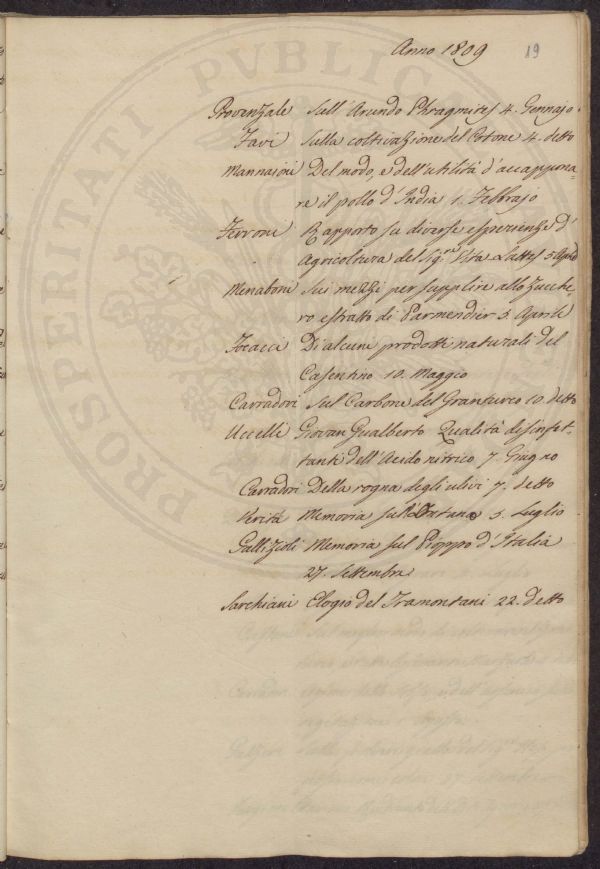 Anno 1809
19
Provenzale Sull'Arundo Phragmites 4. Gennajo
Favi Sulla coltivazione del Cotone 4. detto
Mannajoni Del modo, e dell'utilità d'accappona-
re il pollo d'India 1. Febbrajo
Ferroni Rapporto su diverse esperienze d'
Agricoltura del Sigre. Vita Lattes 5 Aprile
Menaboni Sui mezzi per supplire allo Zucche
ro estratto di Parmendier 5. Aprile
Focacci Di alcuni prodotti naturali del
Casentino 10. Maggio
Carradori Sul Carbone del Granturco 10. detto
Uccelli Giovan Gualberto Qualità disinfet-
tanti dell'Acido nitrico 7. Giugno
Carradori Della rogna degli ulivi 7. detto
Verità Memoria sulla Datura 5. Luglio
Gallizioli Memoria sul Pioppo d'Italia
27. Settembre
Sarchiani Elogio del Tramontani 22. detto
PROSPERITATI PUBLICAE